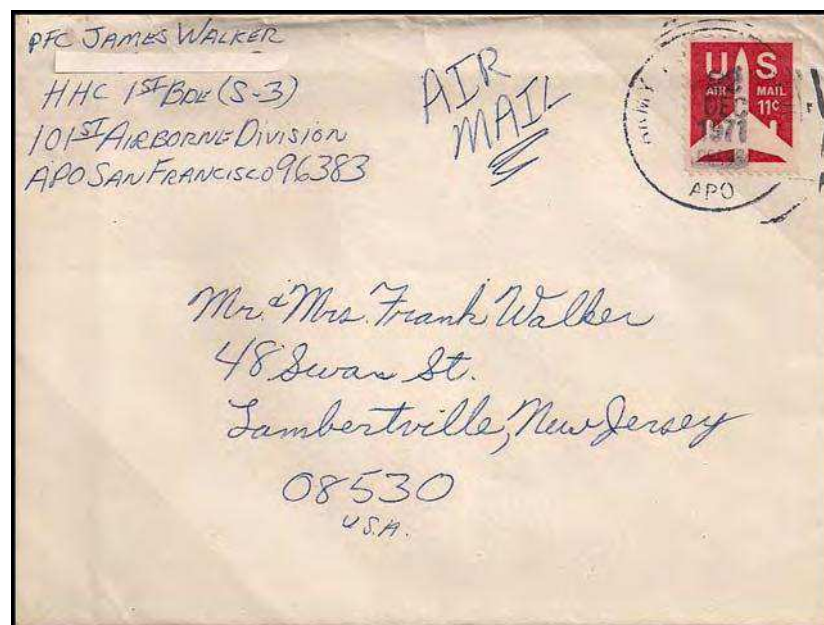 PFC JAMES WALKER
HHC 1ST BDE (S-3)
101ST AIRBORNE DIVISION
APO SAN FRANCISCO 96383
AIR
MAIL
ARMY
US
AIR MAIL
11¢
DEC
1971
APO
Mr. & Mrs. Frank Walker
48 Swan St.
Lambertville, New Jersey
08530
U.S.A.